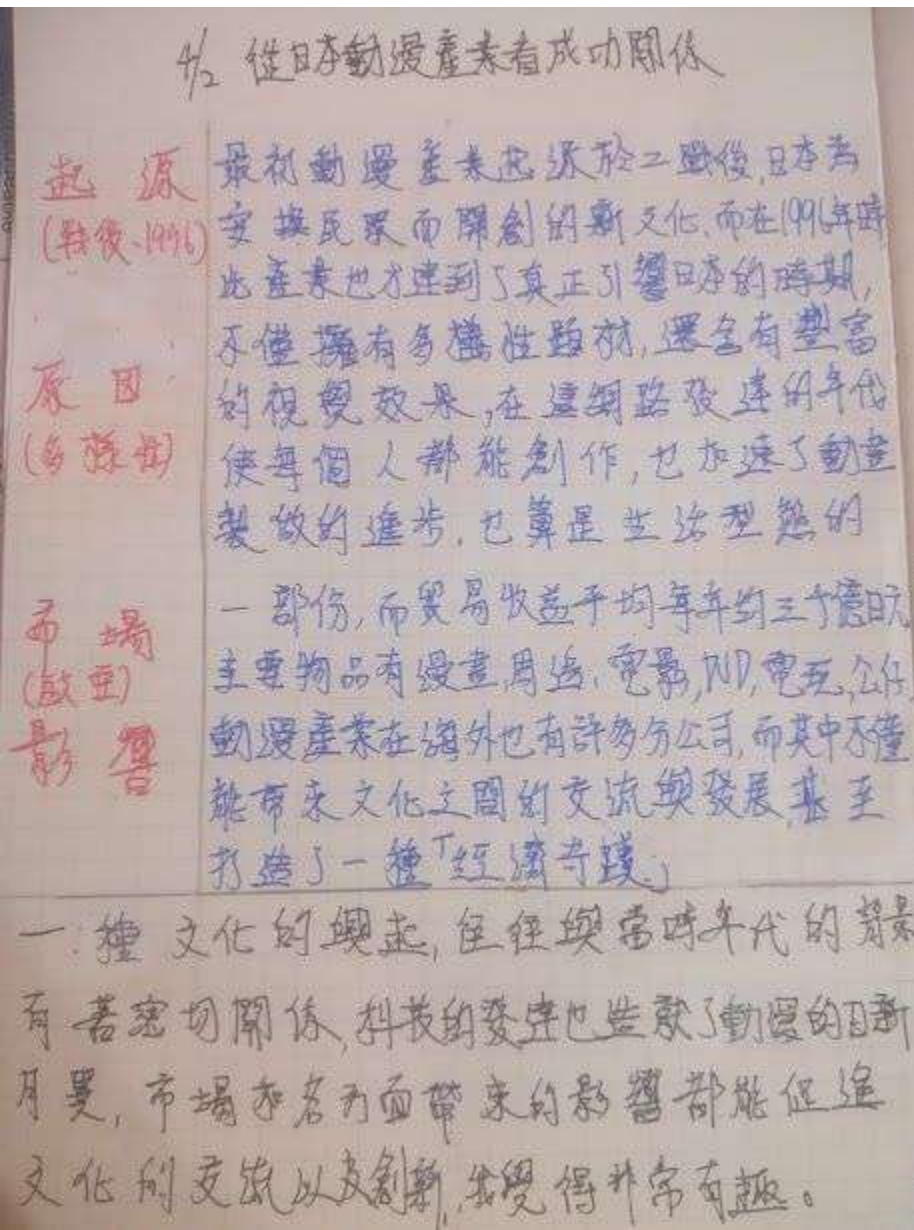 4/2 從日本動漫產業看成功關係
起源
(戰後、1996)
原因
(多樣性)
市場
(啟亞)
影響
最初動漫產業起源於二戰後,日本為
安撫民眾而開創的新文化、而在1996年時
此產業也才達到了真正引響日本的時期,
不僅擁有多樣性題材,還含有豐富
的視覺效果,在這網路發達的年代
使每個人都能創作,也加速了動畫
製做的進步.也算是生活型態的
一部份,而貿易收益平均每年約三千億日元
主要物品有漫畫,周邊、電影,DVD,電玩,公仔
動漫產業在海外也有許多分公司,而其中不僅
能帶來文化之間的交流與發展甚至
打造了一種「經濟奇蹟」
一種文化的興起,往往與當時年代的背景
有著密切關係,科技的發達也造就了動漫的日新
月異,市場和各方面帶來的影響都能促進
文化的交流以及創新,我覺得非常有趣。